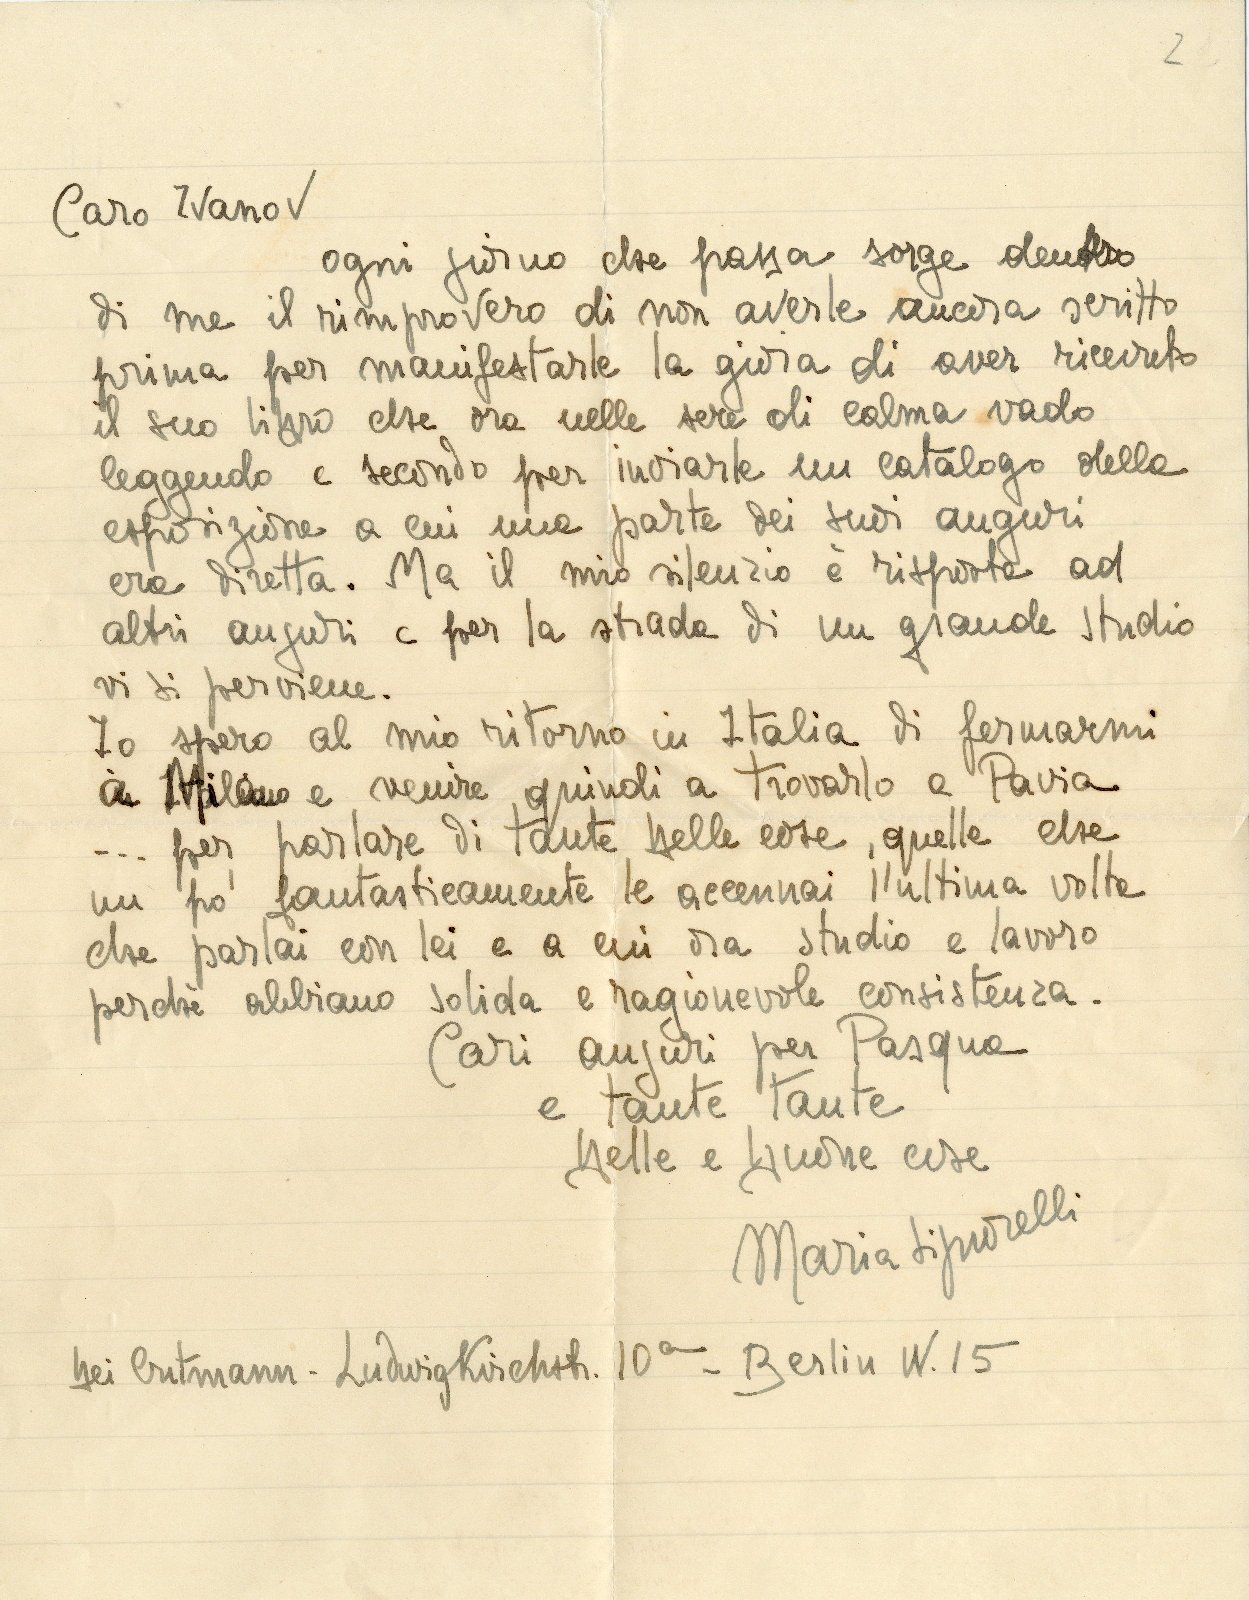 2
Caro Ivanov
ogni giorno che passa sorge dentro
di me il rimprovero di non averle ancora scritto
prima per manifestarle la gioia di aver ricevuto
il suo libro che ora nelle sere di calma vado
leggendo e secondo per inviarle un catalogo della
esposizione a cui una parte dei suoi auguri
era diretta. Ma il mio silenzio è risposta ad
altri auguri e per la strada di un grande studio
vi si perviene.
Io spero al mio ritorno in Italia di fermarmi
a Milano e venire quindi a trovarlo a Pavia
--- per parlare di tante belle cose, quelle che
un po' fantasticamente le accennai l'ultima volta
che parlai con lei e a cui ora studio e lavoro
perchè abbiano solida e ragionevole consistenza.
Cari auguri per Pasqua
e tante tante
belle e buone cose
Maria Signorelli
bei - Ludwigkirchstr. 10a - Berlin W. 15